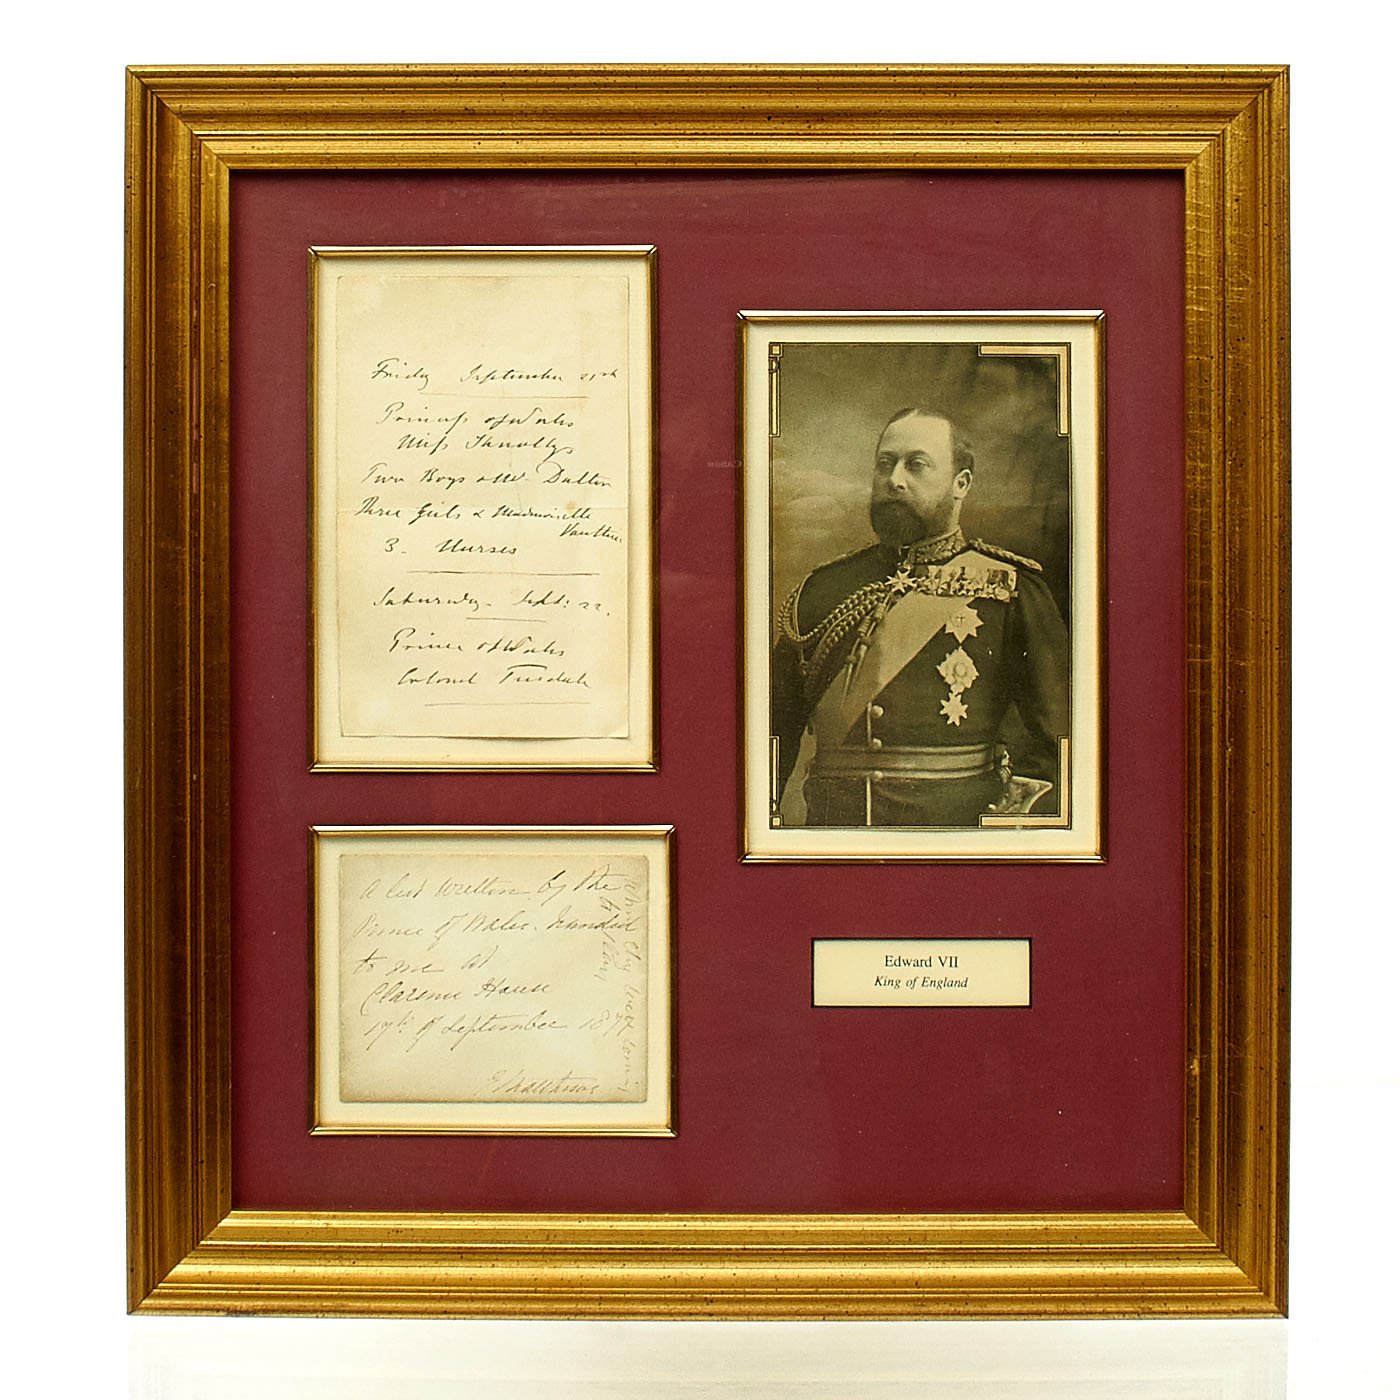 Friday September 21st
Princess of Wales
Miss Knollys
Two Boys & Mr Dalton
Three Girls & Mademoiselle
Vauthier
3 - Nurses
Saturday - Sept: 22.
Prince of Wales
Colonel Teesdale
A list written by the
Prince of Wales. handed
to me at
Clarence House
17th of September 18
E Matthews
Edward VII
King of England